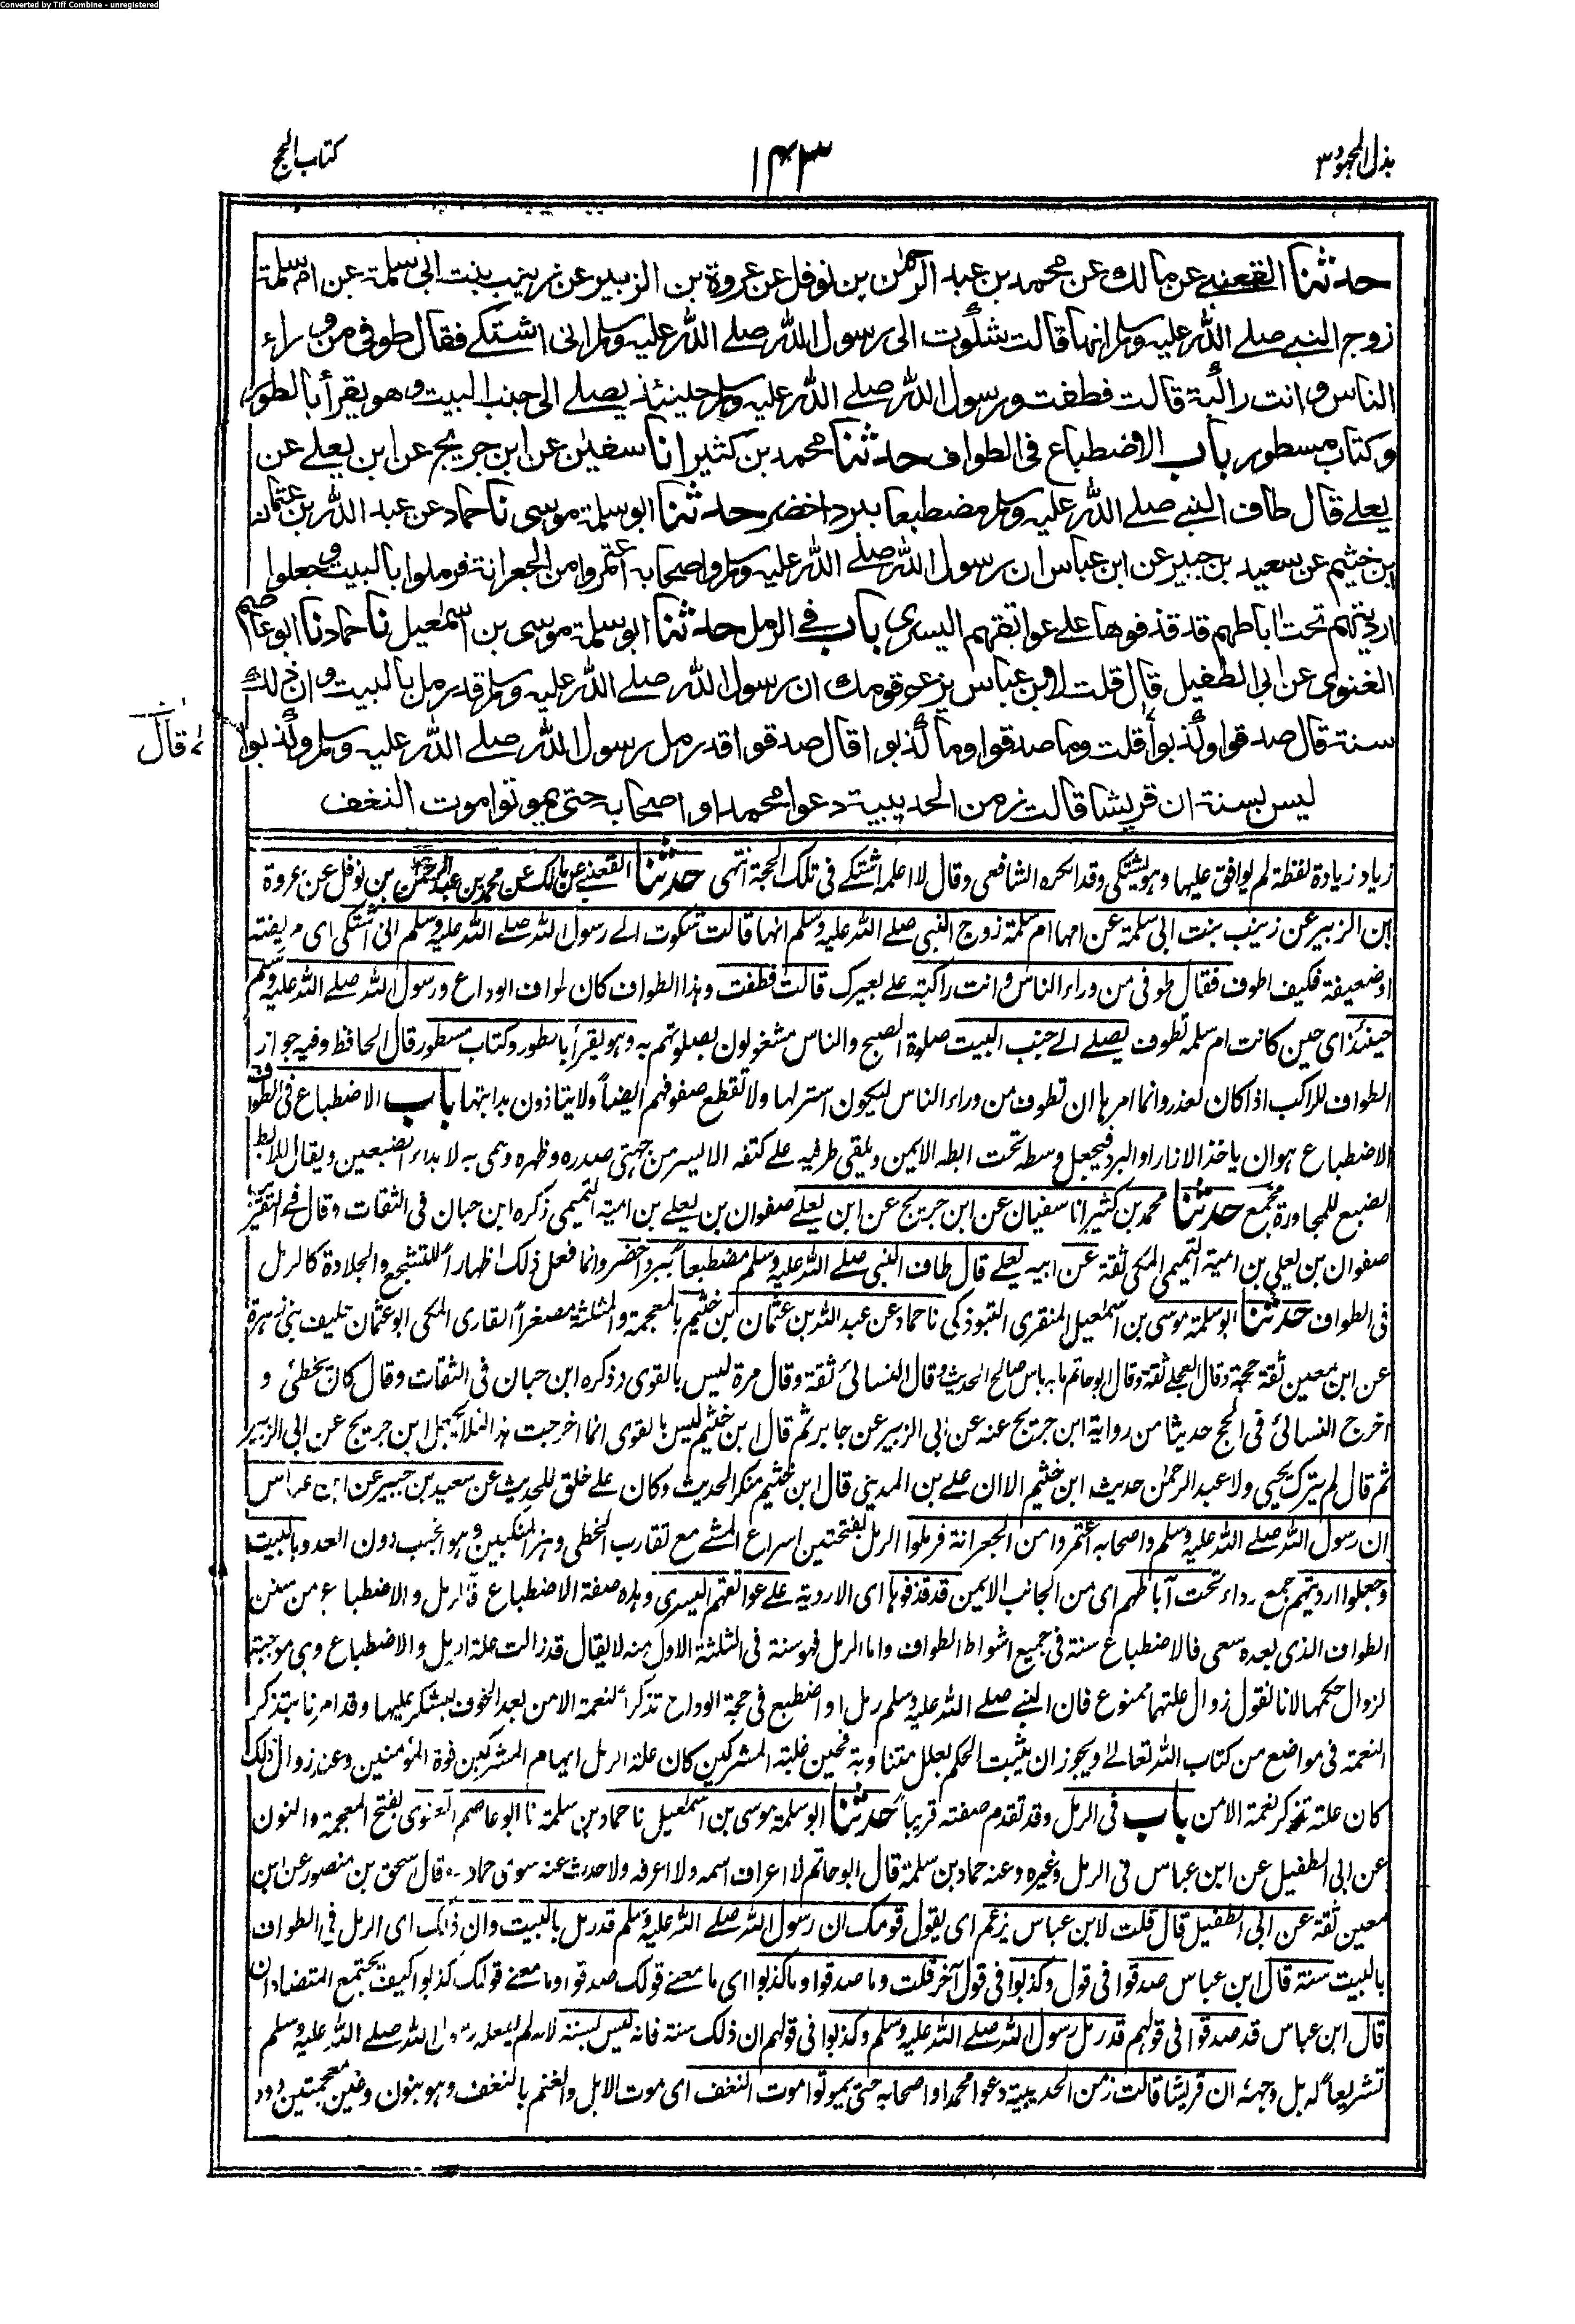 Converted by Tiff Combine - unregistered
بذل المجهود ٣
١٤٣
كتاب الحج
حدثنا القعنبي عن مالك عن محمد بن عبد الرحمٰن بن نوفل عن عروة بن الزبير عن زينب بنت ابى سلمة عن ام سلمة
زوج النبي صلى الله عليه وسلم انها قالت شكوت الى رسول الله صلى الله عليه وسلم انى اشتكى فقال طوفى من وراء
الناس وانت راكبة قالت فطفت ورسول الله صلى الله عليه وسلم حينئذ يصلى الى جنب البيت وهو يقرأ بالطور
وكتاب مسطور باب الاضطباع فى الطواف حدثنا محمد بن كثير انا سفيٰن عن ابن جريج عن ابن يعلى عن
يعلى قال طاف النبي صلى الله عليه وسلم مضطبعا ببرد اخضر حدثنا ابو سلمة موسى نا حماد عن عبد الله بن عثمان
بن خثيم عن سعيد بن جبير عن ابن عباس ان رسول الله صلى الله عليه وسلم واصحابه اعتمروا من الجعرانة فرملوا بالبيت وجعلوا
ارديتهم تحت اٰباطهم قد قذفوها على عواتقهم اليسرى باب فى الرمل حدثنا ابو سلمة موسى بن اسمٰعيل نا حماد نا ابو عاصم
الغنوى عن ابى الطفيل قال قلت لابن عباس يزعم قومك ان رسول الله صلى الله عليه وسلم قد رمل بالبيت وان ذلك
سنة قال صدقوا وكذبوا قلت وما صدقوا وما كذبوا قال صدقوا قد رمل رسول الله صلى الله عليه وسلم وكذبوا
قال
ليس بسنة ان قريشا قالت زمن الحديبية دعوا محمدا واصحابه حتى يموتوا موت النغف
زياد زيادة لفظة لم يوافق عليها وهو يشتكى وقد انكره الشافعى وقال لا اعلمه اشتكى فى تلك الحجة انتهى حدثنا القعنبى عن مالك عن محمد بن عبد الرحمٰن بن نوفل عن عروة
بن الزبير عن زينب بنت ابى سلمة عن امها ام سلمة زوج النبى صلى الله عليه وسلم انها قالت شكوت الى رسول الله صلى الله عليه وسلم انى اشتكى اى مريضة
او ضعيفة فكيف اطوف فقال طوفى من وراء الناس وانت راكبة على بعيرك قالت فطفت وهذا الطواف كان طواف الوداع ورسول الله صلى الله عليه وسلم
حينئذ اى حين كانت ام سلمة تطوف يصلى الى جنب البيت صلوة الصبح والناس مشغولون بصلوتهم به وهو يقرأ بالطور وكتاب مسطور قال الحافظ وفيه جواز
الطواف للراكب اذا كان لعذر وانما امرها ان تطوف من وراء الناس ليكون استر لها ولا تقطع صفوفهم ايضاً ولا يتأذون بدابتها باب الاضطباع فى الطواف
الاضطباع هو ان ياخذ الازار او البرد فيجعل وسطه تحت ابطه الايمن ويلقى طرفيه على كتفه الايسر من جهتى صدره وظهره وسمى به لابداء الضبعين ويقال للابط
الضبع للمجاورة مجمع حدثنا محمد بن كثير انا سفيان عن ابن جريج عن ابن يعلى صفوان بن يعلى بن امية التميمى ذكره ابن حبان فى الثقات وقال فى التقريب
صفوان بن يعلى بن امية التميمى المكى ثقة عن ابيه يعلى قال طاف النبى صلى الله عليه وسلم مضطبعاً ببرد اخضر وانما فعل ذلك اظهاراً للتشجع والجلادة كالرمل
فى الطواف حدثنا ابو سلمة موسى بن اسمٰعيل المنقرى التبوذكى نا حماد عن عبد الله بن عثمان ابن خثيم بالمعجمة والمثلثة مصغراً القارى المكى ابو عثمان حليف بنى زهرة
عن ابن معين ثقة حجة وقال العجلى ثقة وقال ابو حاتم ما به باس صالح الحديث وقال النسائى ثقة وقال مرة ليس بالقوى وذكره ابن حبان فى الثقات وقال كان يخطئ و
اخرج النسائى فى الحج حديثا من رواية ابن جريج عنه عن ابى الزبير عن جابر ثم قال ابن خثيم ليس بالقوى انما اخرجت هذا لئلا يجعل ابن جريج عن ابى الزبير
ثم قال لم يترك يحيى ولا عبد الرحمٰن حديث ابن خثيم الا ان على بن المدينى قال ابن خثيم منكر الحديث وكان على خلق للحديث عن سعيد بن جبير عن ابن عباس
ان رسول الله صلى الله عليه وسلم واصحابه اعتمروا من الجعرانة فرملوا الرمل بفتحتين اسراع المشى مع تقارب الخطى وهز المنكبين وهو الخبب دون العدو بالبيت
وجعلوا ارديتهم جمع رداء تحت آباطهم اى من الجانب الايمن قد قذفوها اى الاردية على عواتقهم اليسرى وهذه صفة الاضطباع فالرمل والاضطباع من سنن
الطواف الذى بعده سعى فالاضطباع سنة فى جميع اشواط الطواف واما الرمل فهو سنة فى الثلثة الاول منه لا يقال قد زالت علة الرمل والاضطباع وهى موجبتها
لزوال حكمها لانا نقول زوال علتهما ممنوع فان النبى صلى الله عليه وسلم رمل او اضطبع فى حجة الوداع تذكراً لنعمة الامن بعد الخوف ليشكر عليها وقد امرنا بتذكر
النعمة فى مواضع من كتاب الله تعالى ويجوز ان يثبت الحكم بعلل متناوبة فحين غلبة المشركين كان علة الرمل ايهام المشركين قوة المؤمنين وعند زوال ذلك
كان علته تذكر نعمة الامن باب فى الرمل وقد تقدم صفته قريباً حدثنا ابو سلمة موسى بن اسمٰعيل نا حماد بن سلمة نا ابو عاصم الغنوى بفتح المعجمة والنون
عن ابى الطفيل عن ابن عباس فى الرمل وغيره وعنه حماد بن سلمة قال ابو حاتم لا اعرف اسمه ولا اعرفه ولا حدث عنه سوى حماد وقال اسحق بن منصور عن ابن
معين ثقة عن ابى الطفيل قال قلت لابن عباس يزعم اى يقول قومك ان رسول الله صلى الله عليه وسلم قد رمل بالبيت وان ذلك اى الرمل فى الطواف
بالبيت سنة قال ابن عباس صدقوا فى قول وكذبوا فى قول آخر قلت وما صدقوا وما كذبوا اى ما معنى قولك صدقوا وما معنى قولك كذبوا كيف يجتمع المتضادان
قال ابن عباس قد صدقوا فى قولهم قد رمل رسول الله صلى الله عليه وسلم وكذبوا فى قولهم ان ذلك سنة فانه ليس بسنة لانه لم يفعله رسول الله صلى الله عليه وسلم
تشريعاً له بل وجهه ان قريشا قالت زمن الحديبية دعوا محمدا واصحابه حتى يموتوا موت النغف اى موت الابل والغنم بالنغف وهو بنون وغين معجمتين دود